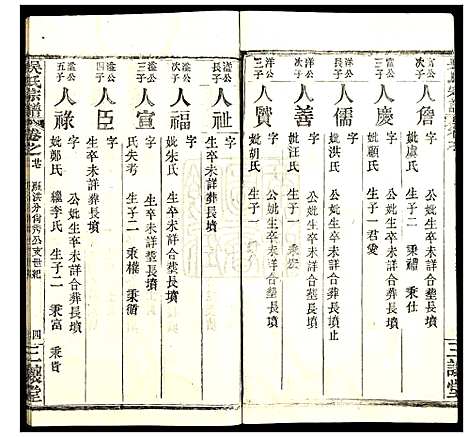 人詹
字
公妣生卒未詳合塟長墳
妣虞氏 生子二 秉禮 秉仕
洋公
次子
人慶
字
公妣生卒未詳合葬長墳
妣顧氏 生子一 君愛
洋公
長子
人儒
字
公妣生卒未詳合塟長墳
妣洪氏 生子
洋公
次子
人善
字
公妣生卒未詳合塟長墳
妣汪氏 生子一 秉宏
洋公
三子
人贒
字
公妣生卒未詳合葬長墳
妣胡氏 生子
溢公
長子
人祉
字
生卒未詳葬長墳
溢公
次子
人福
字
公妣生卒未詳合塟長墳
妣朱氏 生子
溢公
三子
人宣
字
生卒未詳葬長墳
氏失考 生子二 秉權 秉衡
溢公
四子
人臣
字
生卒未詳葬長墳
溢公
五子
人祿
字
公妣生卒未詳合葬長墳
妣鄭氏 繼李氏 生子二 秉富 秉貴
吳氏宗譜 卷之
四
三讓堂
三讓堂